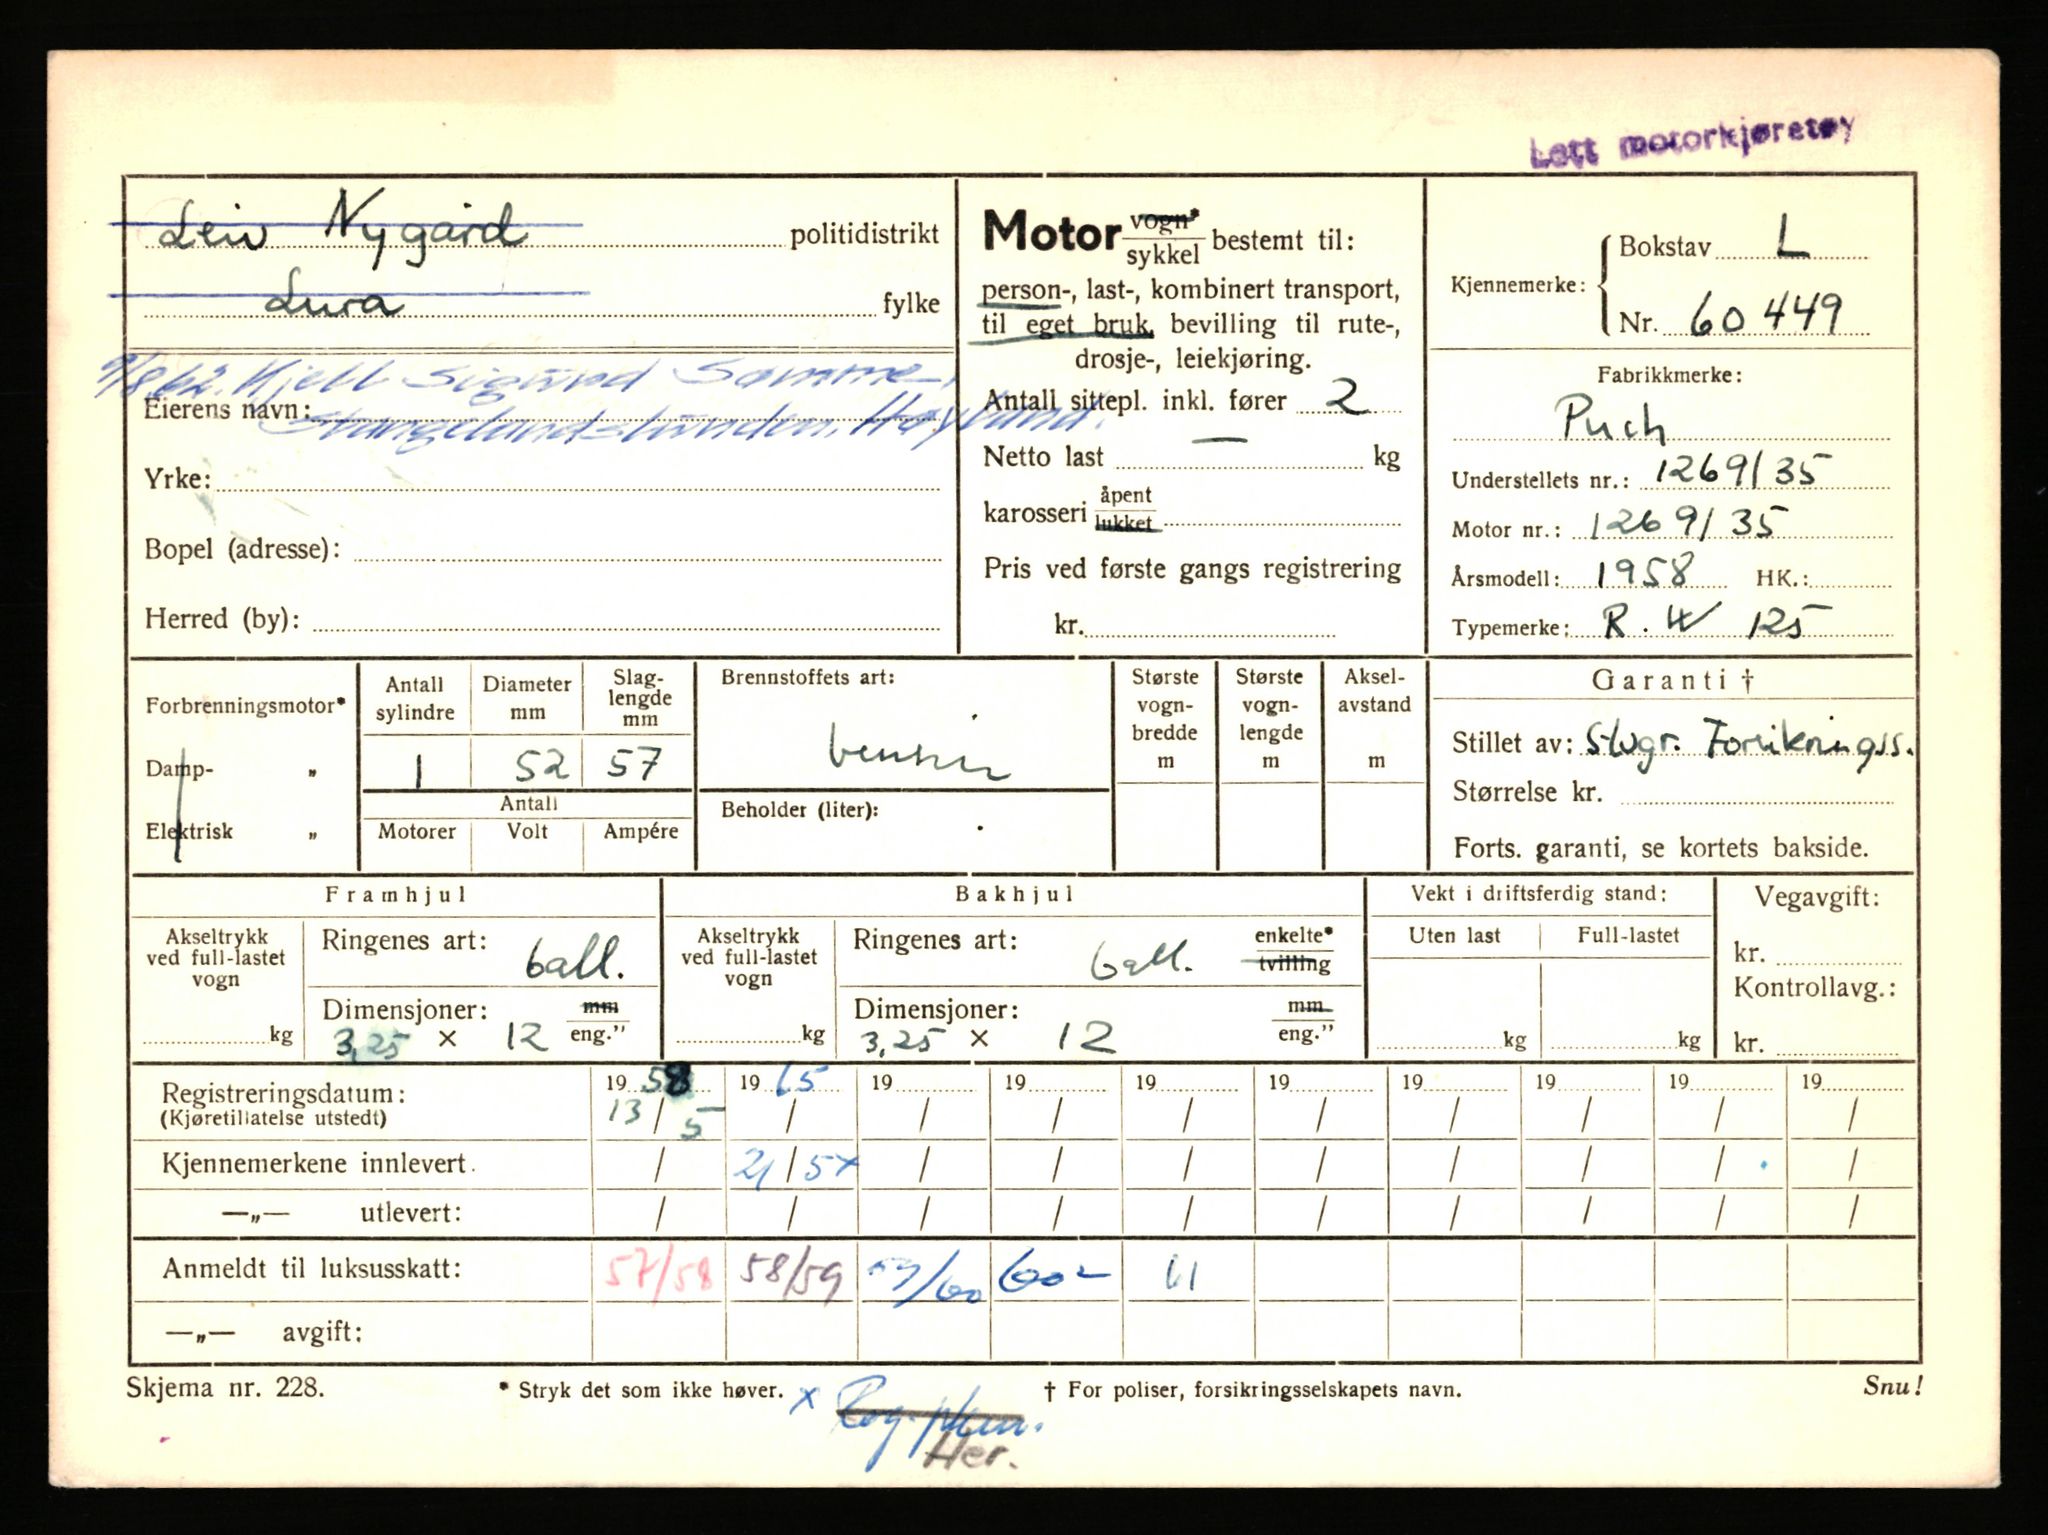 Lett motorkjøretøy
Leiv Nygård politidistrikt
Lura fylke
9/8.62. Kjell Sigurd Sømme,
Eierens navn: Stangelandslunden, Høyland.
Yrke:
Bopel (adresse):
Herred (by):
Motor vogn* / sykkel bestemt til:
person-, last-, kombinert transport,
til eget bruk, bevilling til rute-,
drosje-, leiekjøring.
Antall sittepl. inkl. fører 2
Netto last — kg
karosseri åpent / lukket
Pris ved første gangs registrering
kr.
Kjennemerke: Bokstav L
Nr. 60449
Fabrikkmerke:
Puch
Understellets nr.: 1269135
Motor nr.: 1269135
Årsmodell: 1958 HK.:
Typemerke: R.W 125
Forbrenningsmotor*
Damp- „
Elektrisk „
Antall sylindre 1
Diameter mm 52
Slag-lengde mm 57
Antall
Motorer Volt Ampére
Brennstoffets art:
bensin
Beholder (liter):
Største vogn-bredde m
Største vogn-lengde m
Aksel-avstand m
Garanti †
Stillet av: Stvgr. Forsikringss.
Størrelse kr.
Forts. garanti, se kortets bakside.
Framhjul
Akseltrykk ved full-lastet vogn kg
Ringenes art: ball.
Dimensjoner: mm / eng.”
3,25 × 12
Bakhjul
Akseltrykk ved full-lastet vogn kg
Ringenes art: ball. enkelte* / tvilling
Dimensjoner: mm / eng.”
3,25 × 12
Vekt i driftsferdig stand:
Uten last Full-lastet
kg kg
Vegavgift:
kr.
Kontrollavg.:
kr.
Registreringsdatum: 19 58 19 65 19 19 19 19 19 19 19 19
(Kjøretillatelse utstedt) 13 / 5 / / / / / / / / /
Kjennemerkene innlevert. / 21 / 5x / / / / / / / /
—„— utlevert: / / / / / / / / / /
Anmeldt til luksusskatt: 57/58 58/59 59/60 602 61
—„— avgift:
Skjema nr. 228. * Stryk det som ikke høver. † For poliser, forsikringsselskapets navn. Snu!
x
Her.